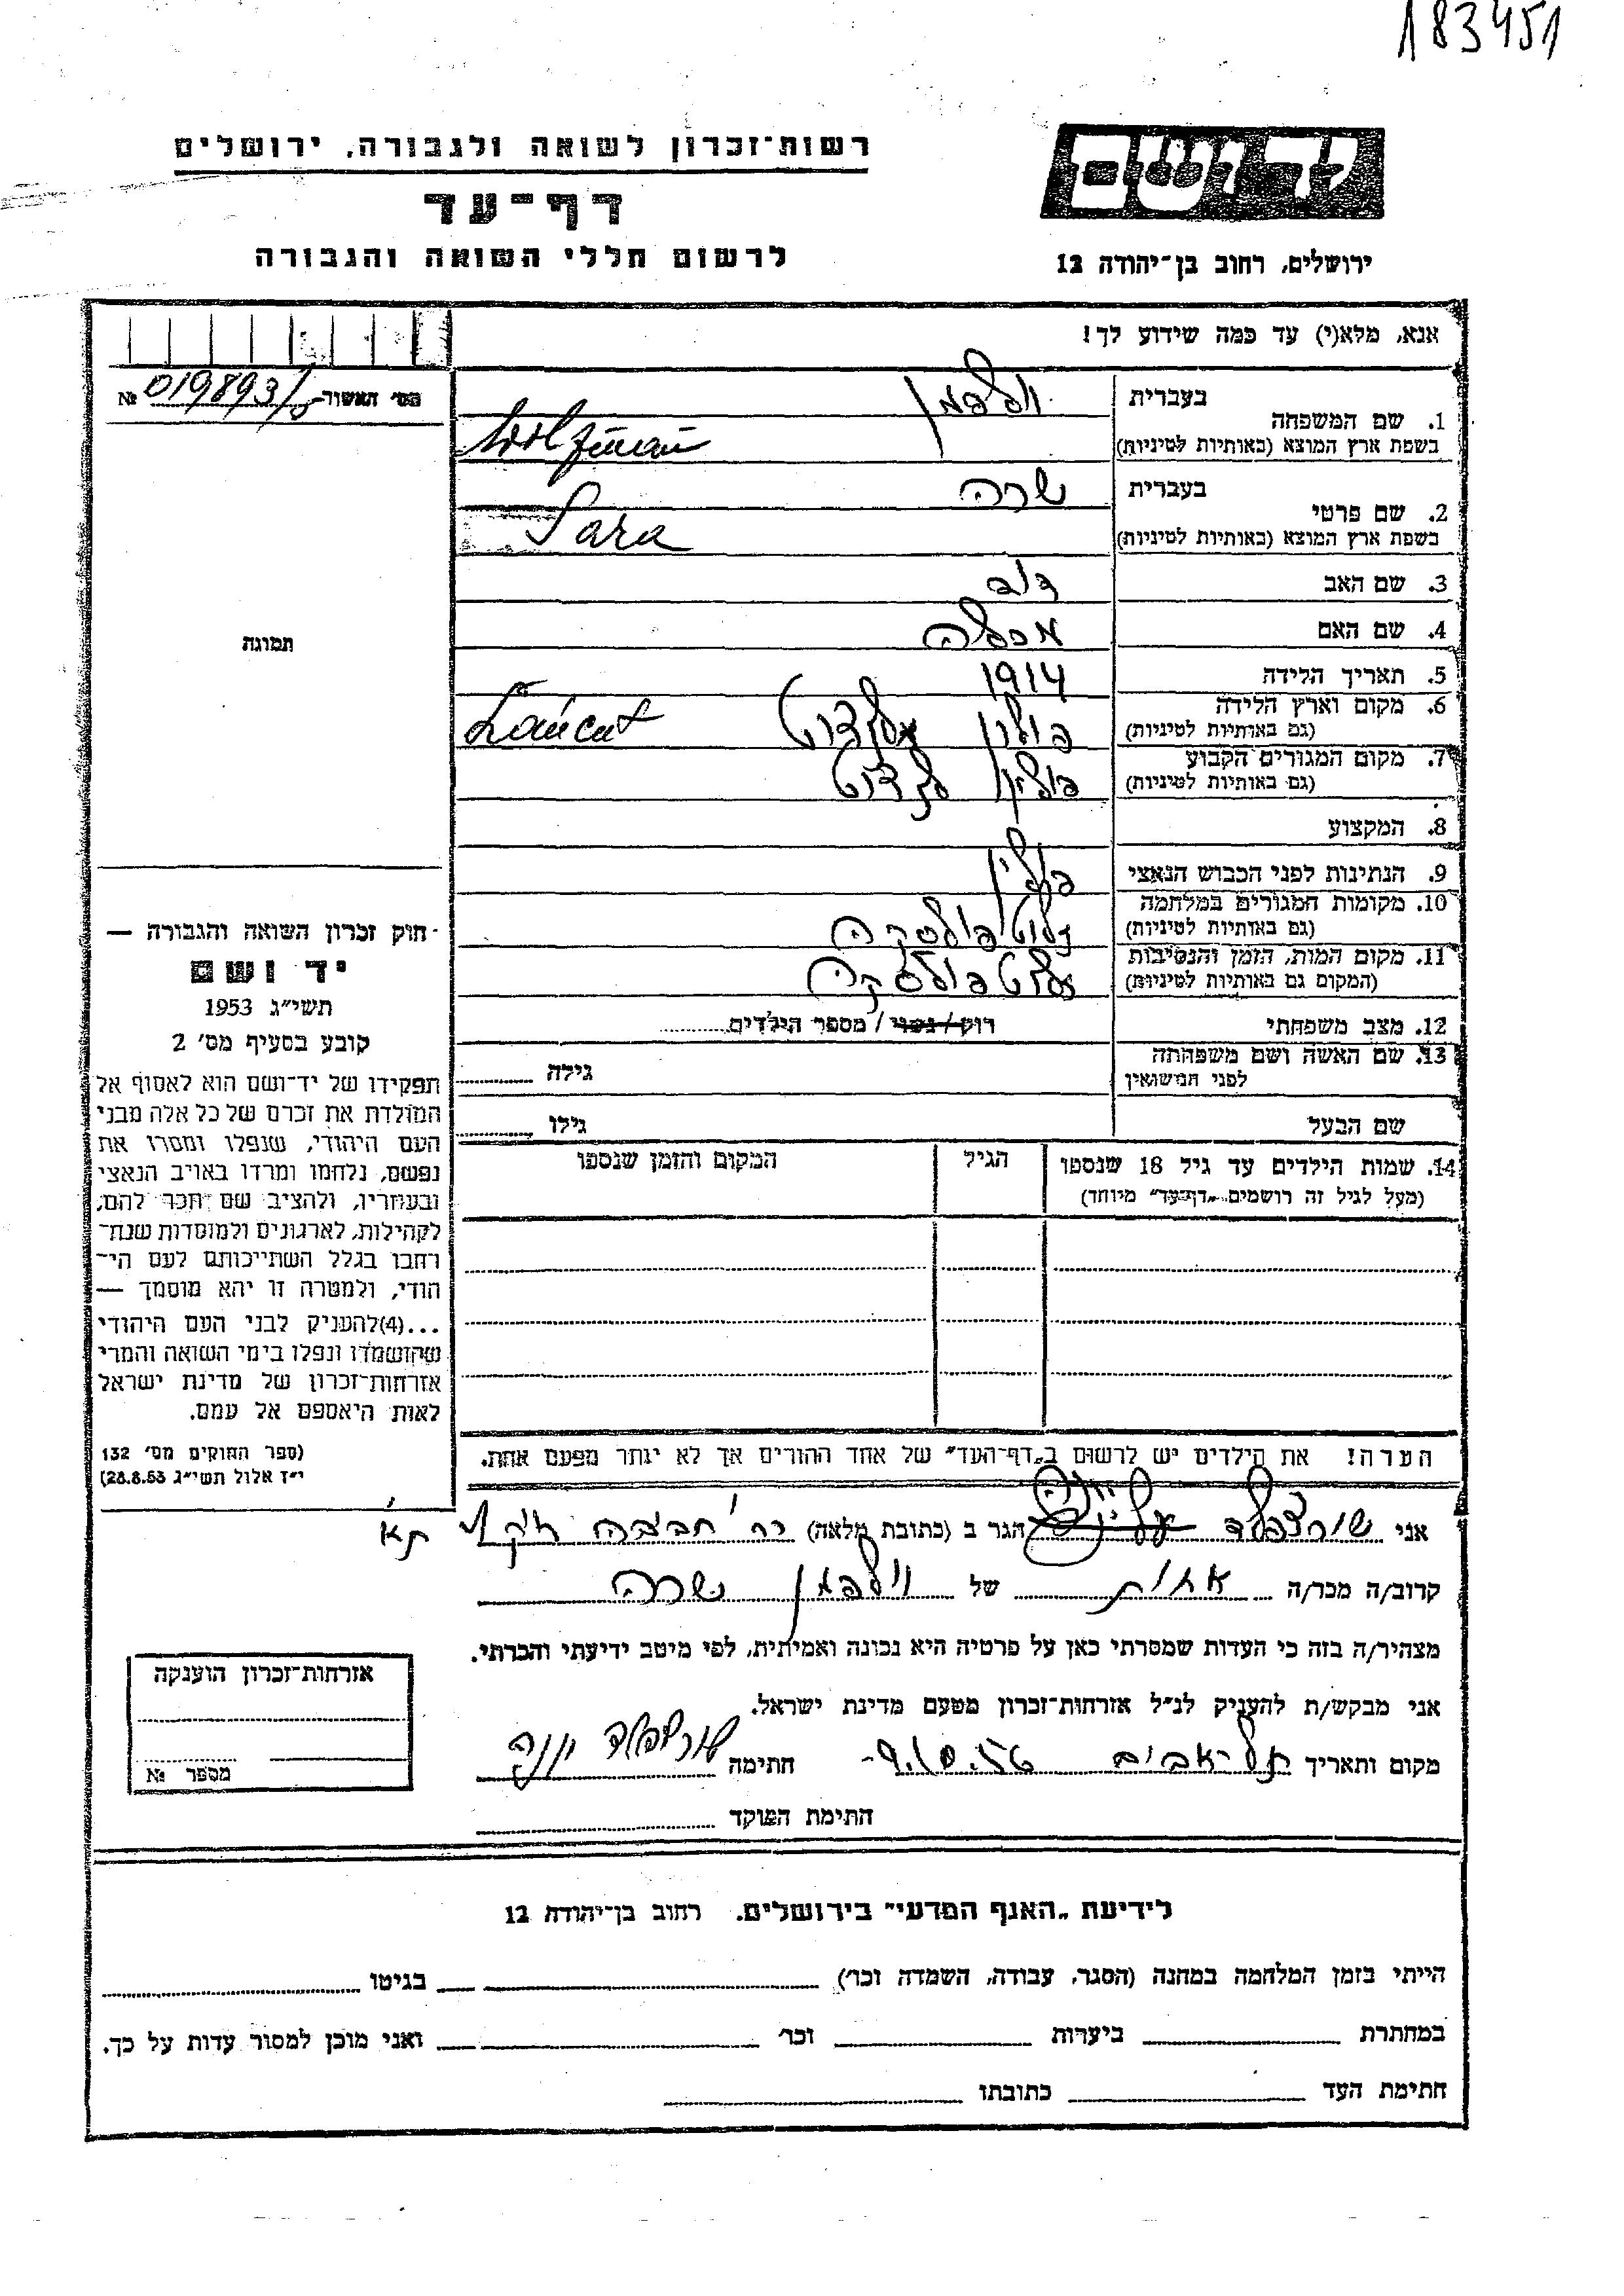 183451
רשות־זכרון לשואה ולגבורה, ירושלים
יד ושם
דף־עד
לרשום חללי השואה והגבורה
ירושלים, רחוב בן־יהודה 12
אנא, מלא(י) עד כמה שידוע לך!
מס׳ האשור № 019893/
בעברית
1. שם המשפחה
בשפת ארץ המוצא (באותיות לטיניות)
בעברית שרה
2. שם פרטי
בשפת ארץ המוצא (באותיות לטיניות) Sara
3. שם האב דוב
4. שם האם
תמונה
5. תאריך הלידה 1914
6. מקום וארץ הלידה פולין Łańcut
(גם באותיות לטיניות)
7. מקום המגורים הקבוע פולין לנצוט
(גם באותיות לטיניות)
8. המקצוע
9. הנתינות לפני הכבוש הנאצי פולין
10. מקומות המגורים במלחמה
(גם באותיות לטיניות)
11. מקום המות, הזמן והנסיבות
(המקום גם באותיות לטיניות)
12. מצב משפחתי רוק / נשוי / מספר הילדים
13. שם האשה ושם משפחתה גילה
לפני הנישואין
שם הבעל גילו
14. שמות הילדים עד גיל 18 שנספו הגיל המקום והזמן שנספו
(מעל לגיל זה רושמים „דף־עד" מיוחד)
הערה! את הילדים יש לרשום ב„דף־העד" של אחד ההורים אך לא יותר מפעם אחת.
חוק זכרון השואה והגבורה —
יד ושם
תשי״ג 1953
קובע בסעיף מס׳ 2
תפקידו של יד־ושם הוא לאסוף אל
המולדת את זכרם של כל אלה מבני
העם היהודי, שנפלו ומסרו את
נפשם, נלחמו ומרדו באויב הנאצי
ובעוזריו, ולהציב שם וזכר להם,
לקהילות, לארגונים ולמוסדות שנח־
רבו בגלל השתייכותם לעם הי־
הודי, ולמטרה זו יהא מוסמך —
...(4)להעניק לבני העם היהודי
שהושמדו ונפלו בימי השואה והמרי
אזרחות־זכרון של מדינת ישראל
לאות היאספם אל עמם.
(ספר החוקים מס׳ 132
י״ז אלול תשי״ג 28.8.53)
אני שורצפלד יונה הגר ב (כתובת מלאה) רח׳ ת״א
קרוב/ה מכר/ה אחות של שרה
מצהיר/ה בזה כי העדות שמסרתי כאן על פרטיה היא נכונה ואמיתית, לפי מיטב ידיעתי והכרתי.
אני מבקש/ת להעניק לנ״ל אזרחות־זכרון מטעם מדינת ישראל.
מקום ותאריך תל־אביב חתימה שורצפלד יונה
חתימת הפוקד
אזרחות־זכרון הוענקה
מספר №
לידיעת „האגף המדעי" בירושלים. רחוב בן־יהודה 12
הייתי בזמן המלחמה במחנה (הסגר, עבודה, השמדה וכו׳) בגיטו
במחתרת ביערות וכו׳ ואני מוכן למסור עדות על כך.
חתימת העד כתובתו